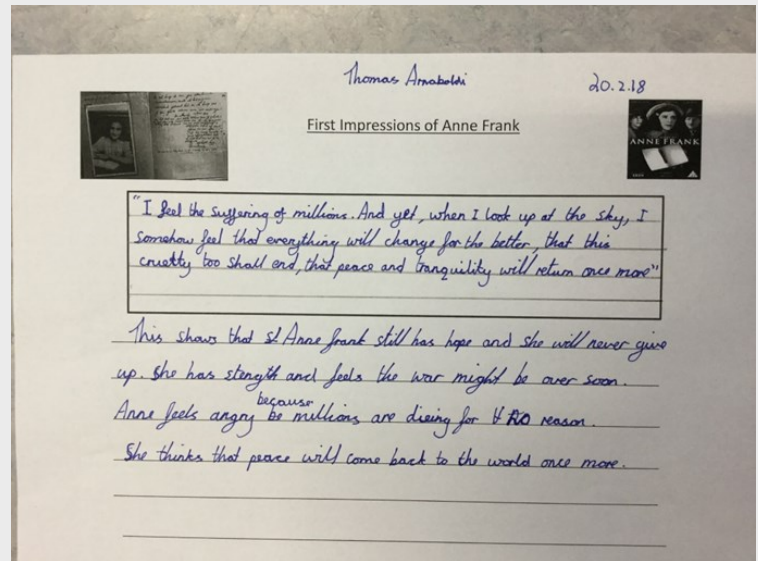 Thomas Arnaboldi
20.2.18
First Impressions of Anne Frank
ANNE FRANK
"I feel the suffering of millions. And yet, when I look up at the sky, I
somehow feel that everything will change for the better, that this
cruelty too shall end, that peace and tranquility will return once more"
This shows that Anne frank still has hope and she will never give
up. She has stength and feels the war might be over soon.
because
Anne feels angry be millions are dieing for no reason.
She thinks that peace will come back to the world once more.